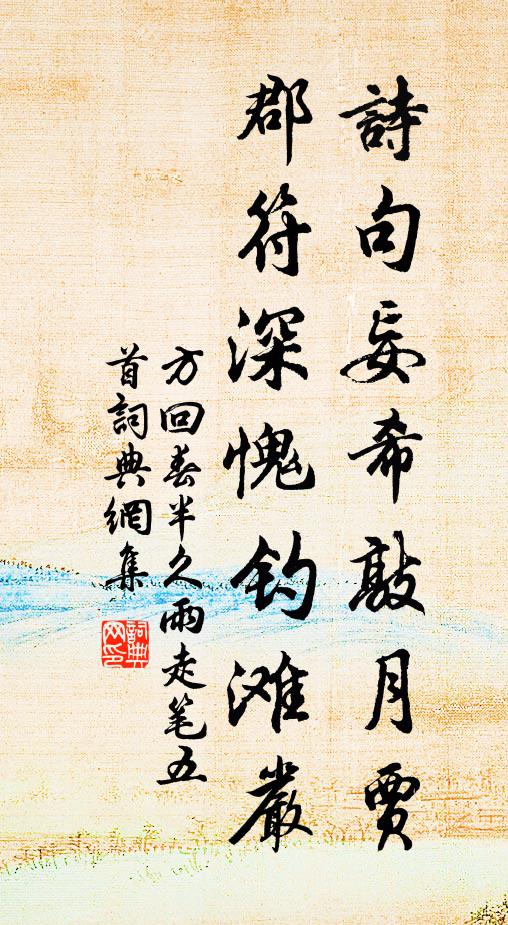 詩句妄希敲月賈
郡符深愧钓滩嚴
方回春半久雨走笔五
首詞典網集
詞典网印